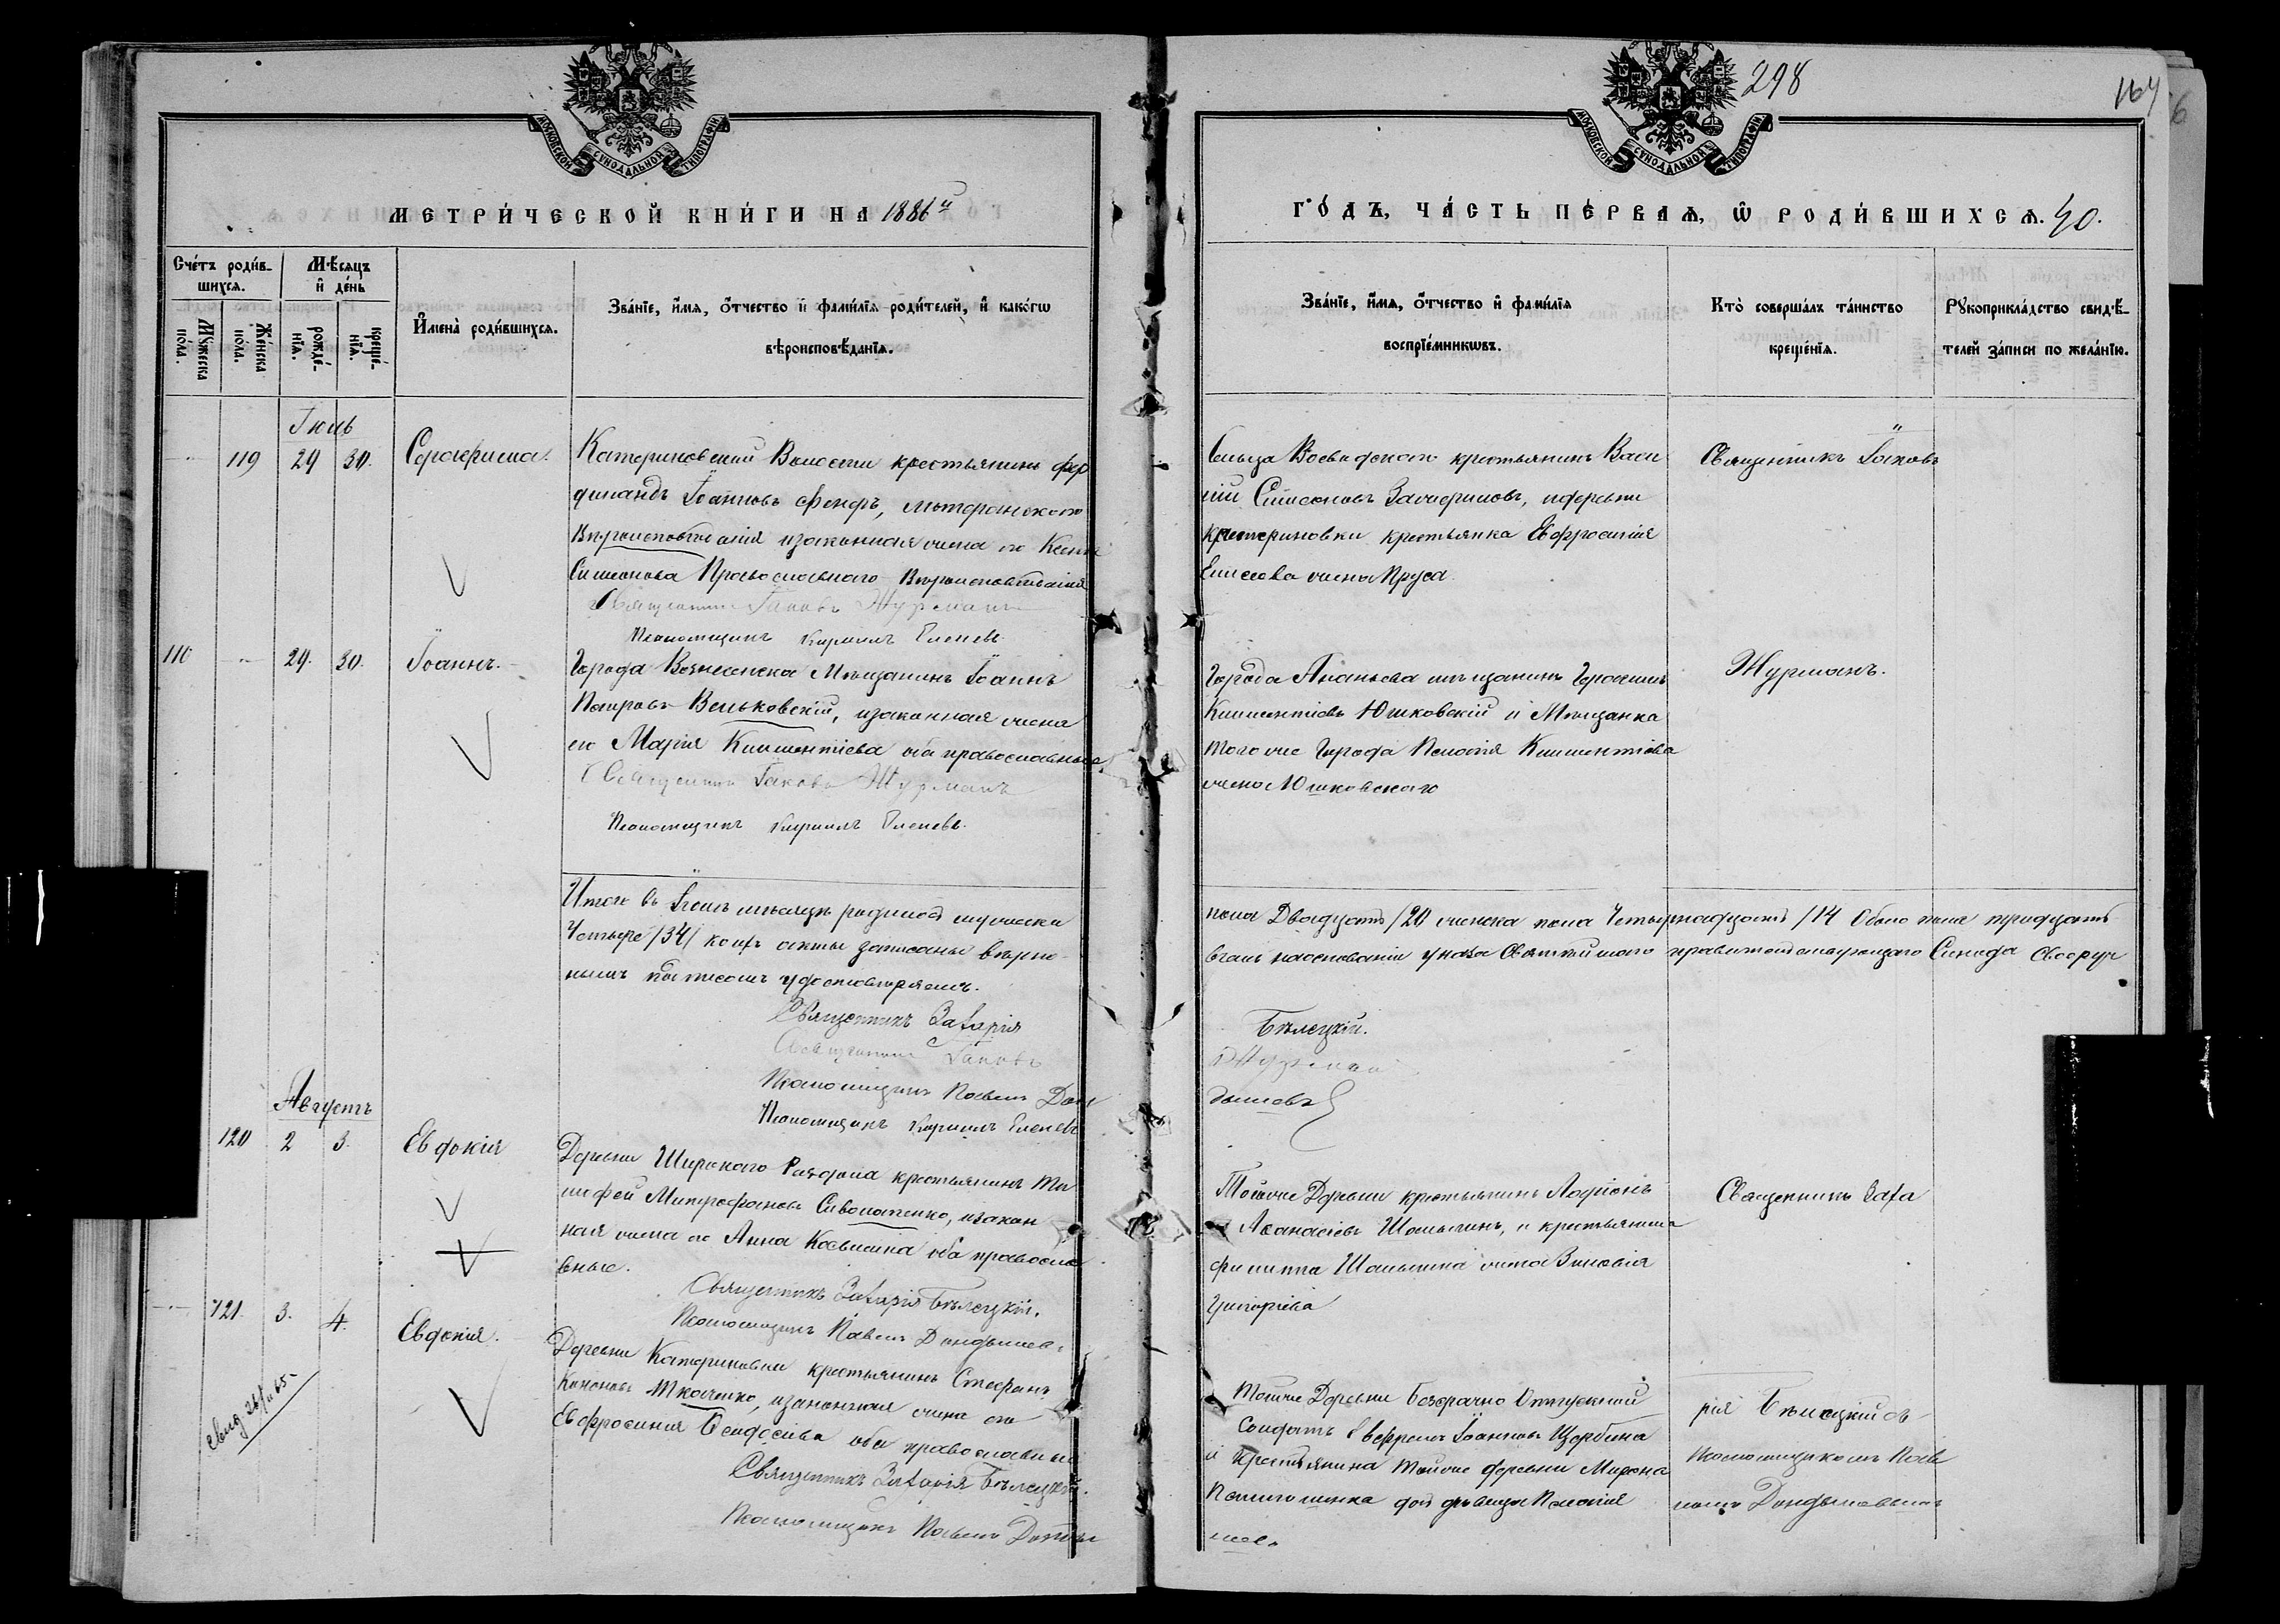 МОСКОВСКОЙ СУНОДАЛЬНОЙ ТИПОГРАФІИ
МЕТРИ́ЧЕСКОЙ КНИ́ГИ НА 1886й
Сче́тъ роди́в-
шихся.
Мѣ́сяцъ
и҆ де́нь
Мꙋ́жеска
по́ла.
Же́нска
по́ла.
рожде́-
нїя.
креще́-
нїя.
И҆мена̀ роди́вшихся.
Зва́нїе, и҆́мя, ѻ҆́тчество и҆ фами́лїя роди́телей, и҆ како́гѡ
вѣроисповѣ́данїя.
Іюль
119 29 30. Серафима.
Катериновской Волости крестьянинъ Фер
динандъ Іоанновъ, лютеранскаго
Вѣроисповѣданія изаконная жена его Ксенія
Симеонова Православнаго Вѣроисповѣданія
Священникъ Іаковъ Журманъ
Псаломщикъ Кириллъ Еленевъ
110 29. 30. Іоаннъ.
Города Вознесенска Мѣщанинъ Іоаннъ
Петровъ Вельковскій, изаконная жена
его Марія Климентіева оба православные
Священникъ Іаковъ Журманъ
Псаломщикъ Кириллъ Еленевъ.
Итого въ Іюлѣ мѣсяцѣ родилось мужеска
Четыре /34/ коихъ акты записаны вѣрно
нымъ подписомъ удостовѣряемъ.
Священникъ Захарія
Священникъ Іаковъ
Псаломщикъ Павелъ Дон
Псаломщикъ Кириллъ Еленевъ
Августъ
120 2 3. Евдокія
Деревни Широкаго Раздола крестьянинъ Ти
мофей Митрофановъ Сиволапенко, изакон
ная жена его Анна оба правосла
вные.
Священникъ Захарія Бѣлецкій.
Псаломщикъ Павелъ Дондышевъ
121. 3. 4. Евдокія.
Деревни Катериновки крестьянинъ Стефанъ
Кононовъ Ткаченко, изаконная жена его
Евфросинія Ѳеодосіева оба православные
Священникъ Захарія Бѣлецкій.
Псаломщикъ Павелъ Донды
свид
МОСКОВСКОЙ СУНОДАЛЬНОЙ ТИПОГРАФІИ
298
164
ГО́ДЪ, ЧА́СТЬ ПЕ́РВАѦ, Ѡ҆ РОДИ́ВШИХСѦ. 40.
Зва́нїе, и҆́мя, ѻ҆́тчество и҆ фами́лїя
воспрїе́мникѡвъ.
Кто̀ соверша́лъ та́инство
креще́нїя.
Рꙋкоприкла́дство свидѣ́-
телей за́писи по жела́нїю.
Сельца Воеводскаго крестьянинъ Васи
лій Симеоновъ, идеревни
Катериновки крестьянка Евфросинія
Елисеева жена Пруса
Священникъ Іаковъ
Города Ананьева мѣщанинъ Герасимъ
Климентіевъ Юшковскій и Мѣщанка
того же Города Пелагія Климентіева
жена Юшковскаго
Журманъ.
пола Двадцать /20 женска пола Четырнадцать /14 Обоего пола тридцать
въчемъ наоснованіи указа Святѣйшаго правительствующаго Синода Своеруч
Бѣлецкій.
Журманъ
дышевъ
Тойже Деревни крестьянинъ Ларіонъ
Аѳанасіевъ Шалыгинъ, и крестьянина
Филиппа Шалыгина жена Зиновія
Григоріева
Священникъ Заха
Тойже Деревни безсрочно Отпускной
Солдатъ Евфремъ Іоанновъ Щербина
и крестьянина тойже деревни Мирона
дочь дѣвица Пелагія
шев.
рія Бѣлецкій съ
Псаломщикомъ Пав
ломъ Дондышевымъ